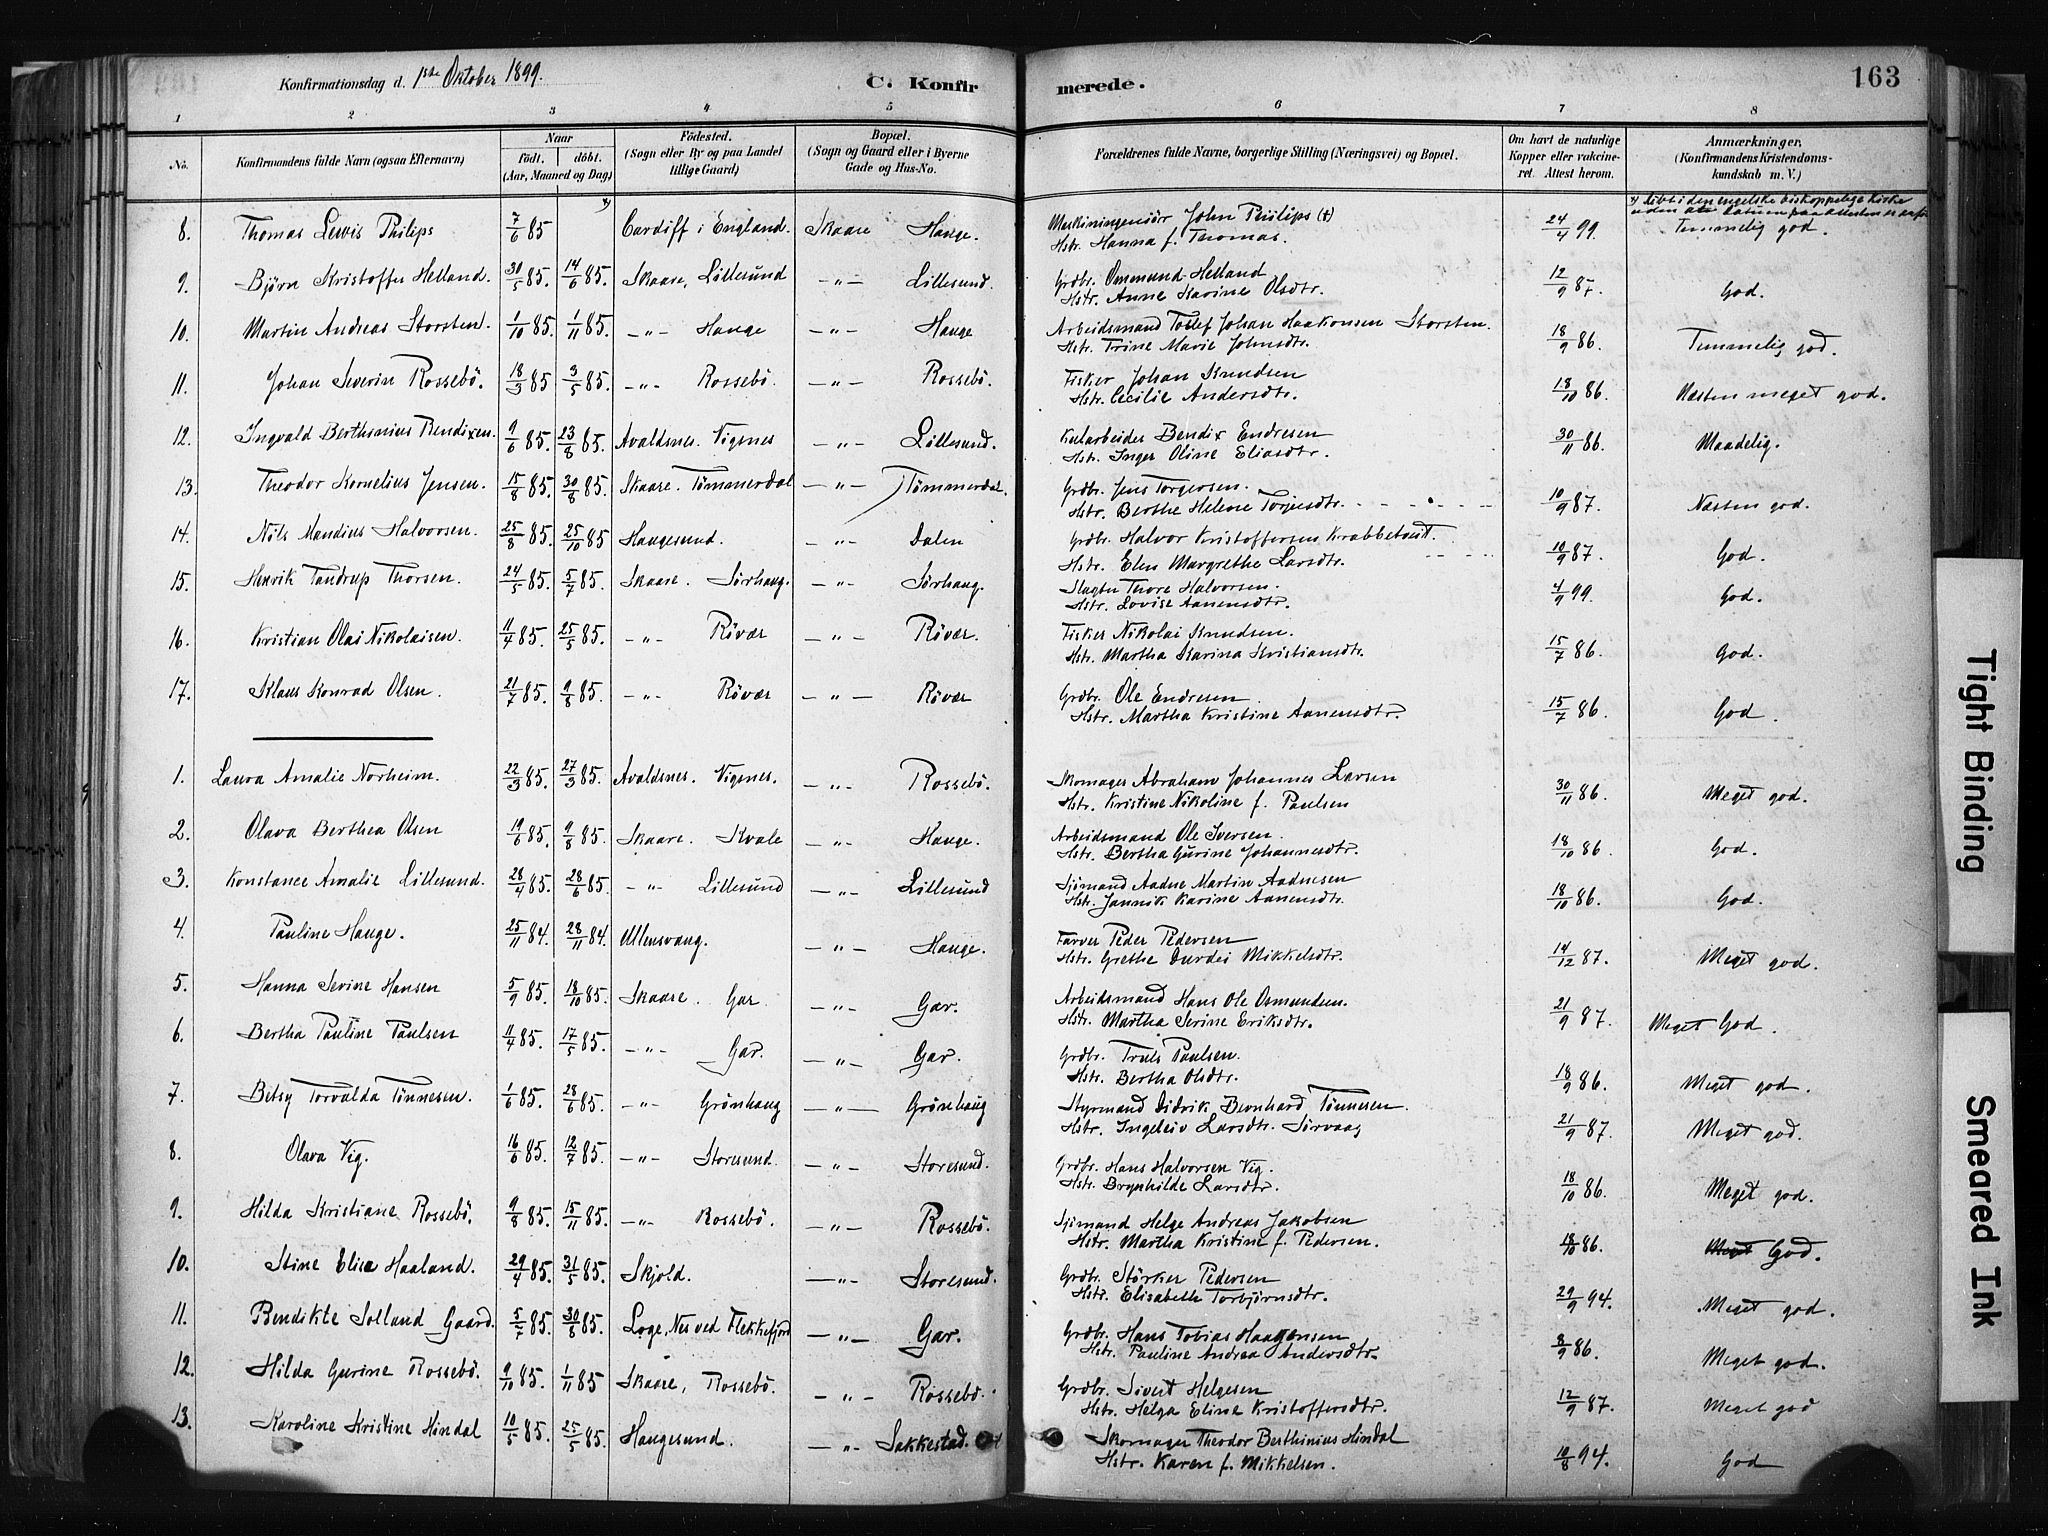 Konfirmationsdag d. 1ste Oktober 1899.
C. Konfir
merede.
163
1 2 3 4 5 6 7 8
No.
Konfirmandens fulde Navn (ogsaa Efternavn)
Naar
födt. döbt.
(Aar, Maaned og Dag)
Födested.
(Sogn eller By og paa Landet tillige Gaard)
Bopæl.
(Sogn og Gaard eller i Byerne Gade og Hus-No.
Forældrenes fulde Navne, borgerlige Stilling (Næringsvei) og Bopæl.
Om havt de naturlige Kopper eller vakcineret. Attest herom.
Anmærkninger.
(Konfirmandens Kristendomskundskab m. V.)
x) döbt i den engelske biskoppelige Kirke
uden datum paa attesten
8. Thomas Lewis Philips 7/6 85 x) Cardiff i England. Skaare Hauge. Maskiningeniör John Philips (†) 24/4 99. Temmelig god.
Hstr. Hanna f. Thomas.
9. Björn Kristoffer Helland. 30/5 85. 14/6 85. Skaare, Lillesund -"- Lillesund. Grdbr. Ommund Helland 12/9 87. God.
Hstr. Anne Karine Olsdtr.
10. Martin Andreas Storsten. 1/10 85. 1/11 85. -"- Hauge -"- Hauge Arbeidsmand Tollef Johan Haakonsen Storsten. 18/9 86. Temmelig god.
Hstr. Trine Marie Johnsdtr.
11. Johan Severin Rossebö. 18/3 85 3/5 85. -"- Rossebö. -"- Rossebö. Fisker Johan Knudsen 18/10 86. Næsten meget god.
Hstr. Cecilie Andersdtr.
12. Ingvald Berthinius Bendixen. 9/6 85. 23/8 85. Avaldsnes. Vigsnes -"- Lillesund. Kularbeider Bendix Endresen 30/11 86. Maadelig.
Hstr. Inger Oline Eliasdtr.
13. Theodor Kornelius Jensen. 15/8 85. 30/8 85. Skaare. Tömmerdal -"- Tömmerdal. Grdbr. Jens Torgersen. 10/9 87. Næsten god.
Hstr. Berthe Helene Torjusdtr.
14. Nils Mandius Halvorsen. 25/8 85. 25/10 85 Haugesund. -"- Dalen Grdbr. Halvor Kristoffersen Krabbetveit. 10/9 87. God.
Hstr. Elen Margrethe Larsdtr.
15. Henrik Tandrup Thorsen. 24/5 85. 5/7 85. Skaare. Sörhaug. -"- Sörhaug. Slagter Thore Halvorsen. 4/9 99. God.
Hstr. Lovise Aanensdtr.
16. Kristian Olai Nikolaisen. 11/4 85. 25/5 85. -"- Rövær -"- Rövær. Fisker Nikolai Knudsen. 15/7 86. God.
Hstr. Martha Karina Kristiansdtr.
17. Klaus Konrad Olsen. 21/7 85. 9/8 85. -"- Rövær -"- Rövær Grdbr. Ole Endresen 15/7 86. God.
Hstr. Martha Kristine Aanensdtr.
1. Laura Amalie Norheim. 22/3 85. 27/3 85. Avaldsnes. Vigsnes. -"- Rossebö. Skomager Abraham Johannes Larsen 30/11 86. Meget god.
Hstr. Kristine Nikoline f. Paulsen
2. Olava Berthea Olsen 19/6 85. 9/8 85. Skaare. Kvale -"- Hauge. Arbeidsmand Ole Iversen. 18/10 86. God.
Hstr. Bertha Gurine Johannesdtr.
3. Konstance Amalie Lillesund. 28/4 85. 28/6 85. -"- Lillesund -"- Lillesund Sjömand Aadne Martin Aadnesen 18/10 86. God.
Hstr. Jannik Karine Aanensdtr.
4. Pauline Hauge. 25/11 84. 28/11 84. Ullensvang. -"- Hauge. Farver Peder Pedersen 14/12 87. Meget god.
Hstr. Grethe Durdei Mikkelsdtr.
5. Hanna Serine Hansen 5/9 85. 18/10 85. Skaare. Gar. -"- Gar. Arbeidsmand Hans Ole Osmundsen. 21/9 87. Meget God.
Hstr. Martha Serine Eriksdtr.
6. Bertha Pauline Paulsen 11/4 85. 17/5 85. -"- Gar. -"- Gar. Grdbr. Truls Paulsen. 18/9 86. Meget god.
Hstr. Bertha Olsdtr.
7. Betsy Torvalda Tönnesen. 1/6 85. 28/6 85. -"- Grönhaug -"- Grönhaug Styrmand Didrik Bernhard Tönnesen. 21/9 87. Meget god.
Hstr. Ingeleiv Larsdtr. Sörvaag
8. Olava Vig. 16/6 85. 12/7 85. -"- Storesund. -"- Storesund. Grdbr. Hans Halvorsen Vig. 18/10 86. Meget god.
Hstr. Brynhilde Larsdtr.
9. Hilda Kristiane Rossebö. 9/8 85. 15/11 85. -"- Rossebö. -"- Rossebö. Sjömand Helge Andreas Jakobsen 18/10 86. Meget God.
Hstr. Martha Kristine f. Pedersen.
10. Stine Elise Haaland. 29/4 85. 31/5 85. Skjold. -"- Storesund. Grdbr. Störker Pedersen 29/9 94. Meget god.
Hstr. Elisabeth Torbjörnsdtr.
11. Bendikte Solland Gaard. 5/7 85. 30/8 85. Loge, Nes ved Flekkefjord -"- Gar. Grdbr. Hans Tobias Haagensen 8/9 86. Meget god.
Hstr. Pauline Andrea Andersdtr.
12. Hilda Gurine Rossebö. 9/10 85. 1/11 85 Skaare, Rossebö. -"- Rossebö. Grdbr. Sivert Helgesen 12/9 87. Meget god
Hstr. Helga Eline Kristoffersdtr.
13. Karoline Kristine Hindal 10/5 85. 25/5 85. Haugesund. -"- Sakkestad. Skomager Theodor Berthinius Hindal 10/8 94. God
Hstr. Karen f. Mikkelsen.
Tight Binding
Smeared Ink